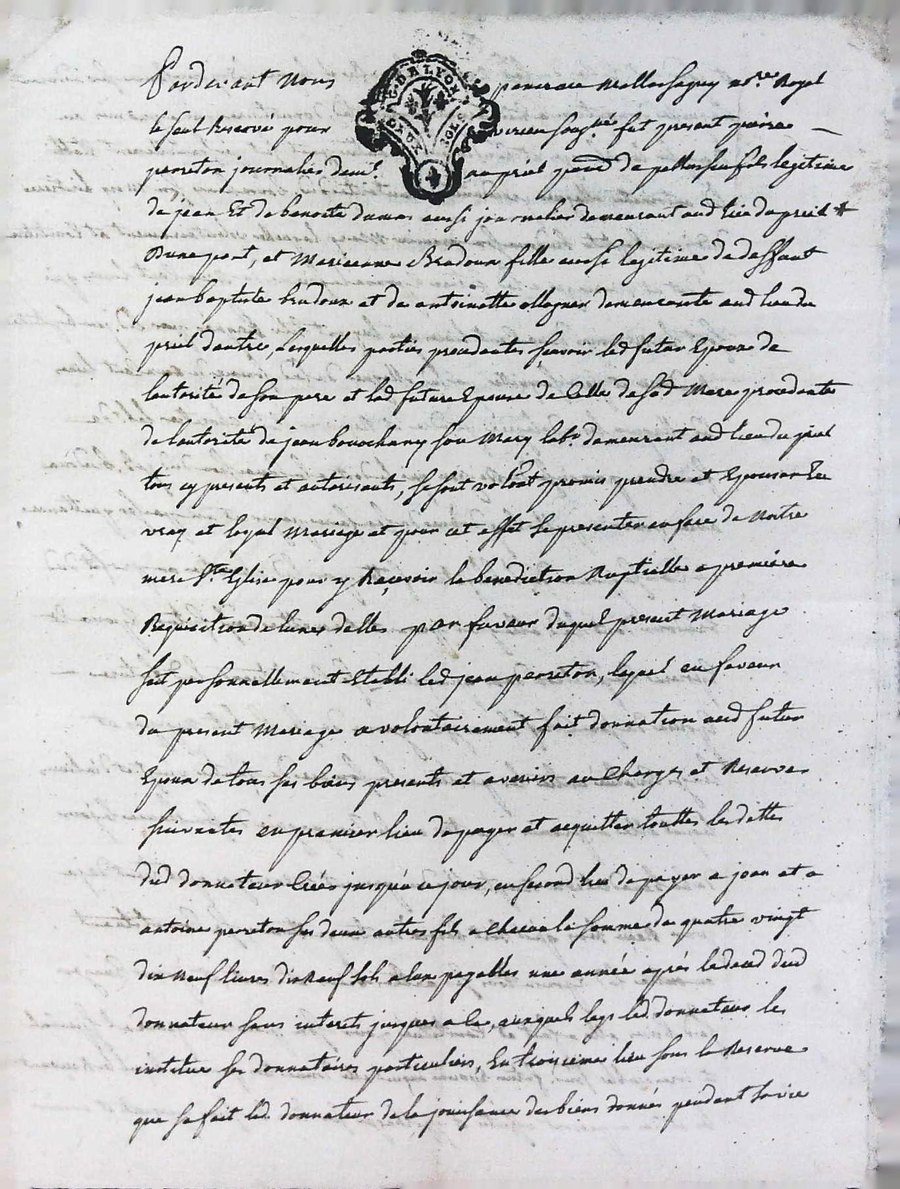 Pardevant Nous pancrace Mallassagny no.re Royal
G. DE LYON
DEUX SOLS
le seul Reservé pour soug.né fut present pierre
pereton journalier dem.t au priel fils legitime
de jean Et de benoite dumas aussi journalier demeurant aud lieu du priel *
Dune part, et Marieanne Bradoux fille aussi legitime de deffunt
jean baptiste bradoux et de antoinette ollagner demeurante aud lieu du
priel dautre, Lesquelles parties procedantes sçavoir led futur Epoux de
lautorité de son pere et lad future Epouse de Celle de sad Mere procedante
de lautorité de jean bouochany son Mary lab.r demeurant aud lieu du priel
tous cy presents et autorisants, se sont volont promis prendre et Epouser En
vray et loyal Mariage et pour cet effet se presenter en face de Notre
mere S.te Eglise pour y Reçevoir la benediction Nuptialle a premiere
Requisition de lunes delles par faveur duquel present Mariage
sest personnellement Etabli led jean pereton, lequel en faveur
du present Mariage a volontairement fait donnation aud futur
Epoux de tous ses biens presents et avenirs au Charges et Reserves
suivantes en premier lieu de payer et acquitter touttes les dettes
dud donnateur Creés jusqu'a ce jour, en second lieu de payer a jean et a
antoine pereton ses deux autres fils a Chacun la somme de quatre vingt
dix Neuf livres dix Neuf sols a eux payables une année aprés le deces dud
donnateur sans interets jusques a la, auxquels legs led. donnateur les
institue ses donnataires particuliers, En troisieme lieu sous la Reserve
que se fait led. donnateur de la jouissance des biens donnés pendant sa vie